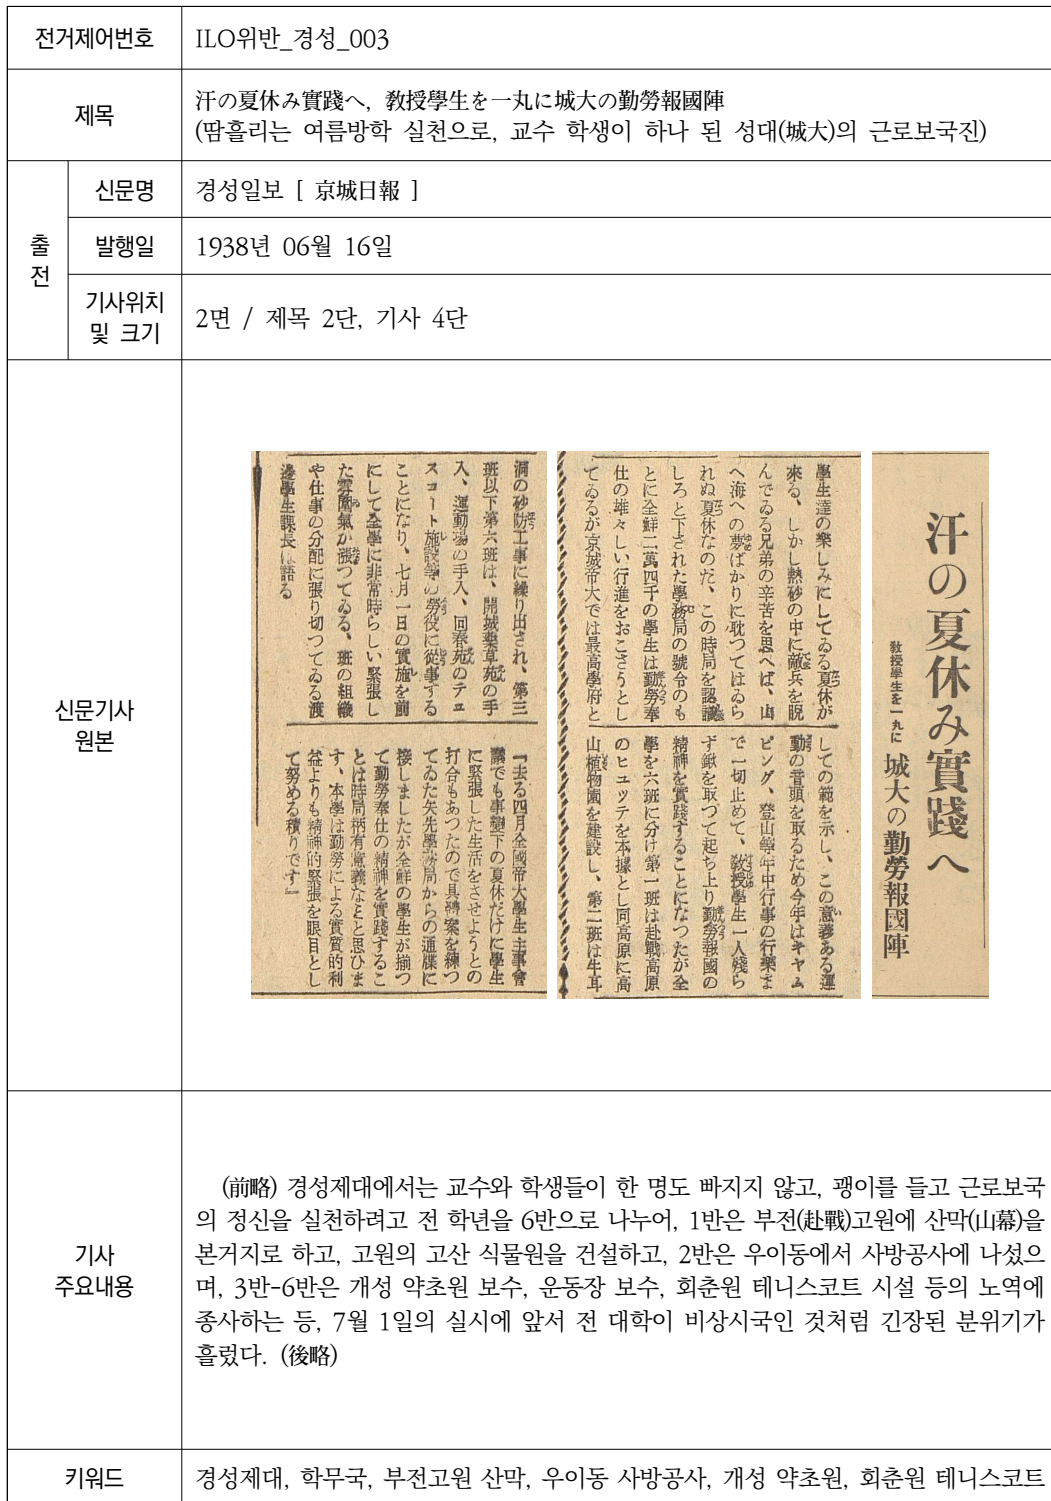 전거제어번호
ILO위반_경성_003
제목
汗の夏休み實踐へ, 敎授學生を一丸に城大の勤勞報國陣
(땀흘리는 여름방학 실천으로, 교수 학생이 하나 된 성대(城大)의 근로보국진)
출전
신문명
경성일보 [ 京城日報 ]
발행일
1938년 06월 16일
기사위치
및 크기
2면 / 제목 2단, 기사 4단
신문기사
원본
汗の夏休み實踐へ
敎授學生を一丸に 城大の勤勞報國陣
學生達の樂しみにしてゐる夏休が
來る、しかし熱砂の中に敵兵を睨
んでゐる兄弟の辛苦を思へば、山
へ海への夢ばかりに耽つてはゐら
れぬ夏休なのだ、この時局を認識
しろと下された學務局の號令のも
とに全鮮二萬四千の學生は勤勞奉
仕の雄々しい行進をおこさうとし
てゐるが京城帝大では最高學府と
しての範を示し、この意義ある運
動の音頭を取るため今年はキャム
ピング、登山等年中行事の行樂ま
で一切止めて、敎授學生一人殘ら
ず鍬を取つて起ち上り勤勞報國の
精神を實踐することになつたが全
學を六班に分け第一班は赴戰高原
のヒュッテを本據とし同高原に高
山植物園を建設し、第二班は牛耳
洞の砂防工事に繰り出され、第三
班以下第六班は、開城藥草苑の手
入、運動場の手入、回春苑のテニ
スコート施設等の勞役に從事する
ことになり、七月一日の實施を前
にして全學に非常時らしい緊張し
た雰圍氣が漲つてゐる、班の組織
や仕事の分配に張り切つてゐる渡
邊學生課長は語る
『去る四月全國帝大學生主事會
議でも事變下の夏休だけに學生
に緊張した生活をさせようとの
打合もあつたので具體案を練つ
てゐた矢先學務局からの通牒に
接しましたが全鮮の學生が揃つ
て勤勞奉仕の精神を實踐するこ
とは時局柄有意義なことと思ひま
す、本學は勤勞による實質的利
益よりも精神的緊張を眼目とし
て努める積りです』
기사
주요내용
(前略) 경성제대에서는 교수와 학생들이 한 명도 빠지지 않고, 괭이를 들고 근로보국
의 정신을 실천하려고 전 학년을 6반으로 나누어, 1반은 부전(赴戰)고원에 산막(山幕)을
본거지로 하고, 고원의 고산 식물원을 건설하고, 2반은 우이동에서 사방공사에 나섰으
며, 3반-6반은 개성 약초원 보수, 운동장 보수, 회춘원 테니스코트 시설 등의 노역에
종사하는 등, 7월 1일의 실시에 앞서 전 대학이 비상시국인 것처럼 긴장된 분위기가
흘렀다. (後略)
키워드
경성제대, 학무국, 부전고원 산막, 우이동 사방공사, 개성 약초원, 회춘원 테니스코트